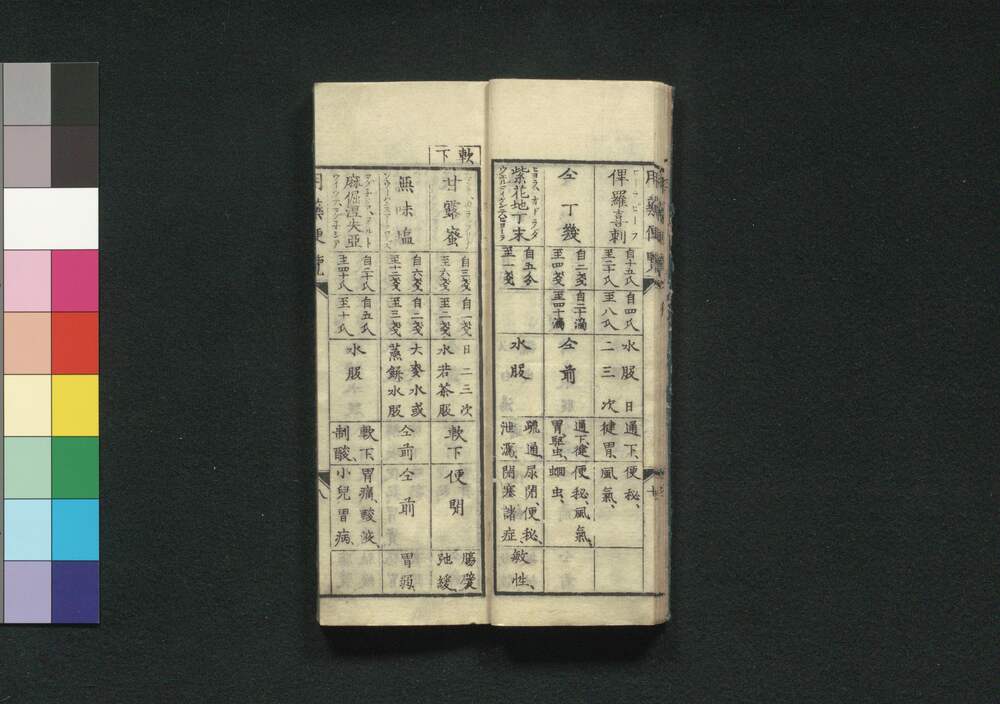 用薬便覧
ヒーラ、ピーラ
俾羅喜剌
自十五氏
至二十氏
自四氏
至八氏
水服日
二三次
通下、
健胃、
便秘、
風氣、
仝丁幾
自二戔
至四戔
自二十滴
至四十滴
仝前
通下、健
胃、駆虫、
便秘風氣、
蛔虫、
紫花地丁末
自五分
至一戔
水服
疏通、
泄瀉、
尿閉、便秘、
閉塞諸症、
敏性、
軟下
甘露蜜
自三戔
至六戔
自一戔
至二戔
日二三次
水若茶服
軟下
便閉
腸襞
弛緩、
無味塩
自六戔
至十二戔
自二戔
至三戔
大麥水或
蒸餅水服
仝前
仝前
胃弱、
麻倔涅失亞
自二十氏
至四十氏
自五氏
至十氏
水服
軟下、
制酸、
胃痛、酸液、
小兒胃病、
用薬便覧
八